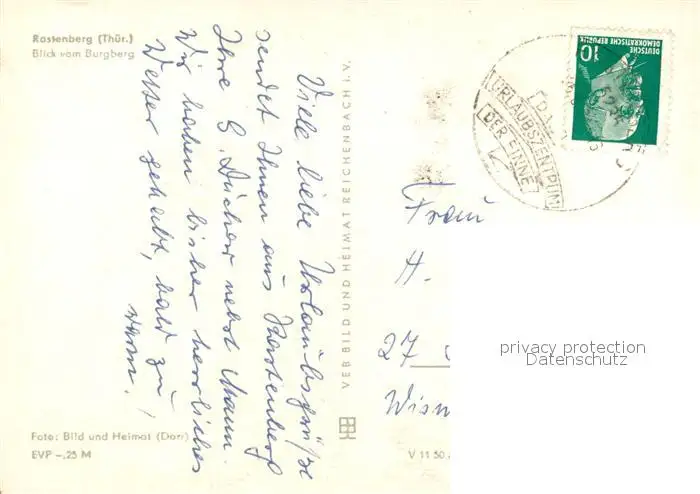 Rastenberg (Thür.)
Blick vom Burgberg
Viele liebe Urlaubsgrüße
sendet Ihnen aus Rastenberg
Ihre E. Dücker nebst Mann.
Wir haben bisher herrliches
Wetter gehabt, bald zu
warm!
VEB BILD UND HEIMAT REICHENBACH i. V.
Foto: Bild und Heimat (Darr)
EVP –,25 M
V 11 50
10
DEUTSCHE
DEMOKRATISCHE REPUBLIK
URLAUBSZENTRUM
DER FINNE
Frau
H.
27
Wism
privacy protection
Datenschutz